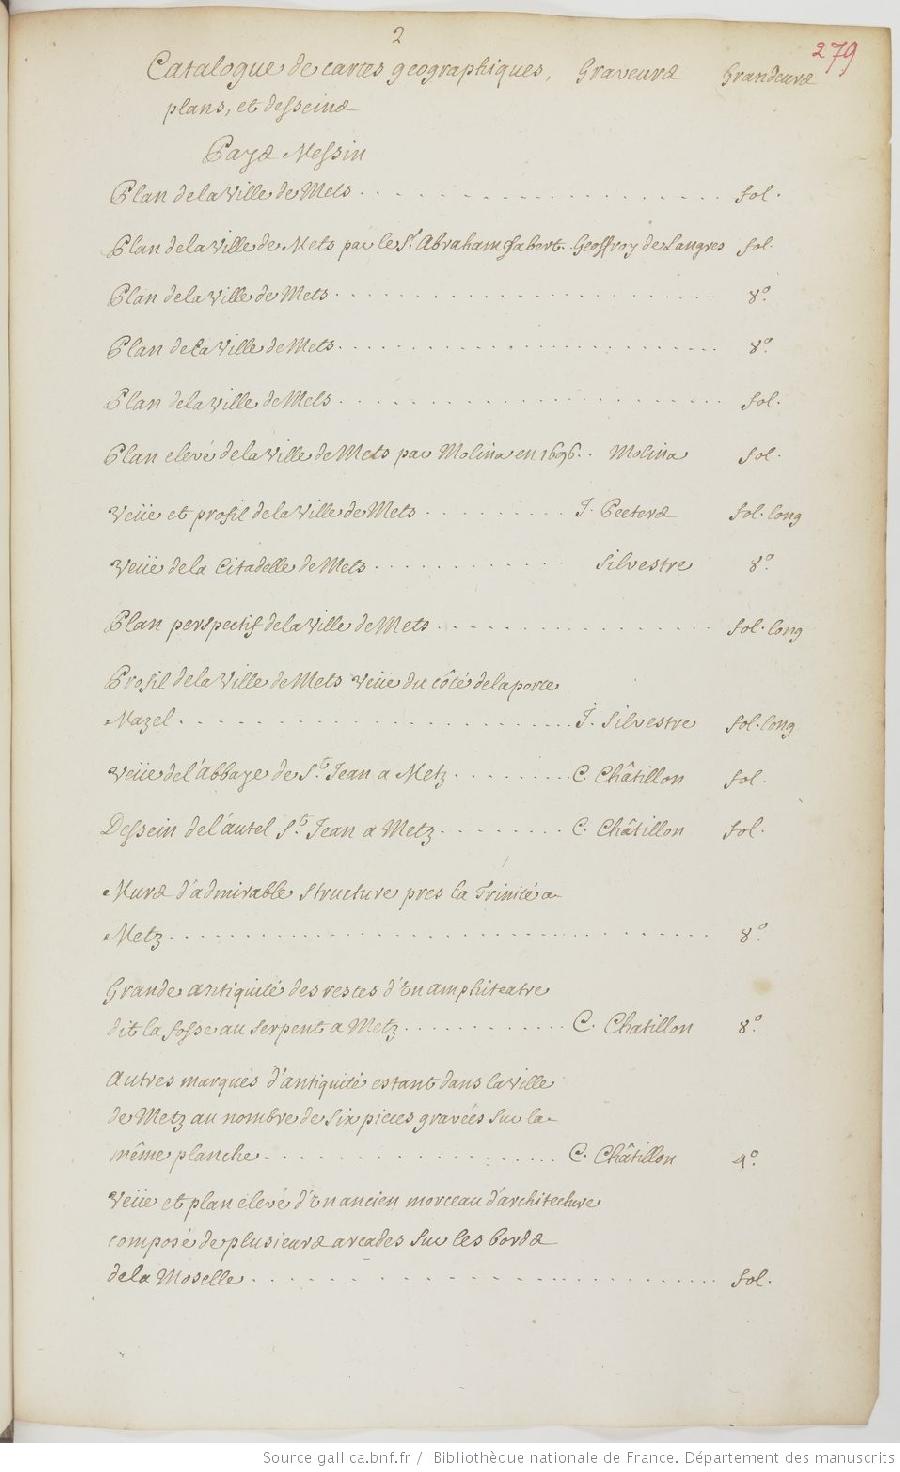 2
279
Catalogue de cartes geographiques, Graveurs Grandeurs
plans, et desseins
Pays Messin
Plan de la Ville de Mets . . . . . fol.
Plan de la Ville de Mets par le Sr. Abraham fabert. Geoffroy de Langres fol.
Plan de la Ville de Mets . . . . . 8º.
Plan de la Ville de Mets . . . . . 8º.
Plan de la Ville de Mets . . . . . fol.
Plan elevé de la Ville de Mets par Molina en 1696. . Molina fol.
Veüe et profil de la Ville de Mets . . . . . J. Peeters fol. long
Veüe de la Citadelle de Mets . . . . . Silvestre 8º.
Plan perspectif de la Ville de Mets . . . . . fol. long
Profil de la Ville de Mets Veüe du côté de la porte
Mazel . . . . . J. Silvestre fol. long
Veüe de l'Abbaye de St. Jean a Metz . . . . . C. Châtillon fol.
Dessein de l'autel St. Jean a Metz . . . . . C. Châtillon fol.
Murs d'admirable structure pres la Trinité a
Metz . . . . . 8º.
Grande antiquité des restes d'Un amphiteatre
dit la fosse au serpent a Metz . . . . . C. Chatillon 8º.
Autres marques d'antiquité estant dans la ville
de Metz au nombre de six pieces gravées sur la
même planche . . . . . C. Châtillon 4º.
Veüe et plan elevé d'Un ancien morceau d'architecture
composé de plusieurs arcades sur les bords
de la Moselle . . . . . fol.
Source gallica.bnf.fr / Bibliothèque nationale de France. Département des manuscrits